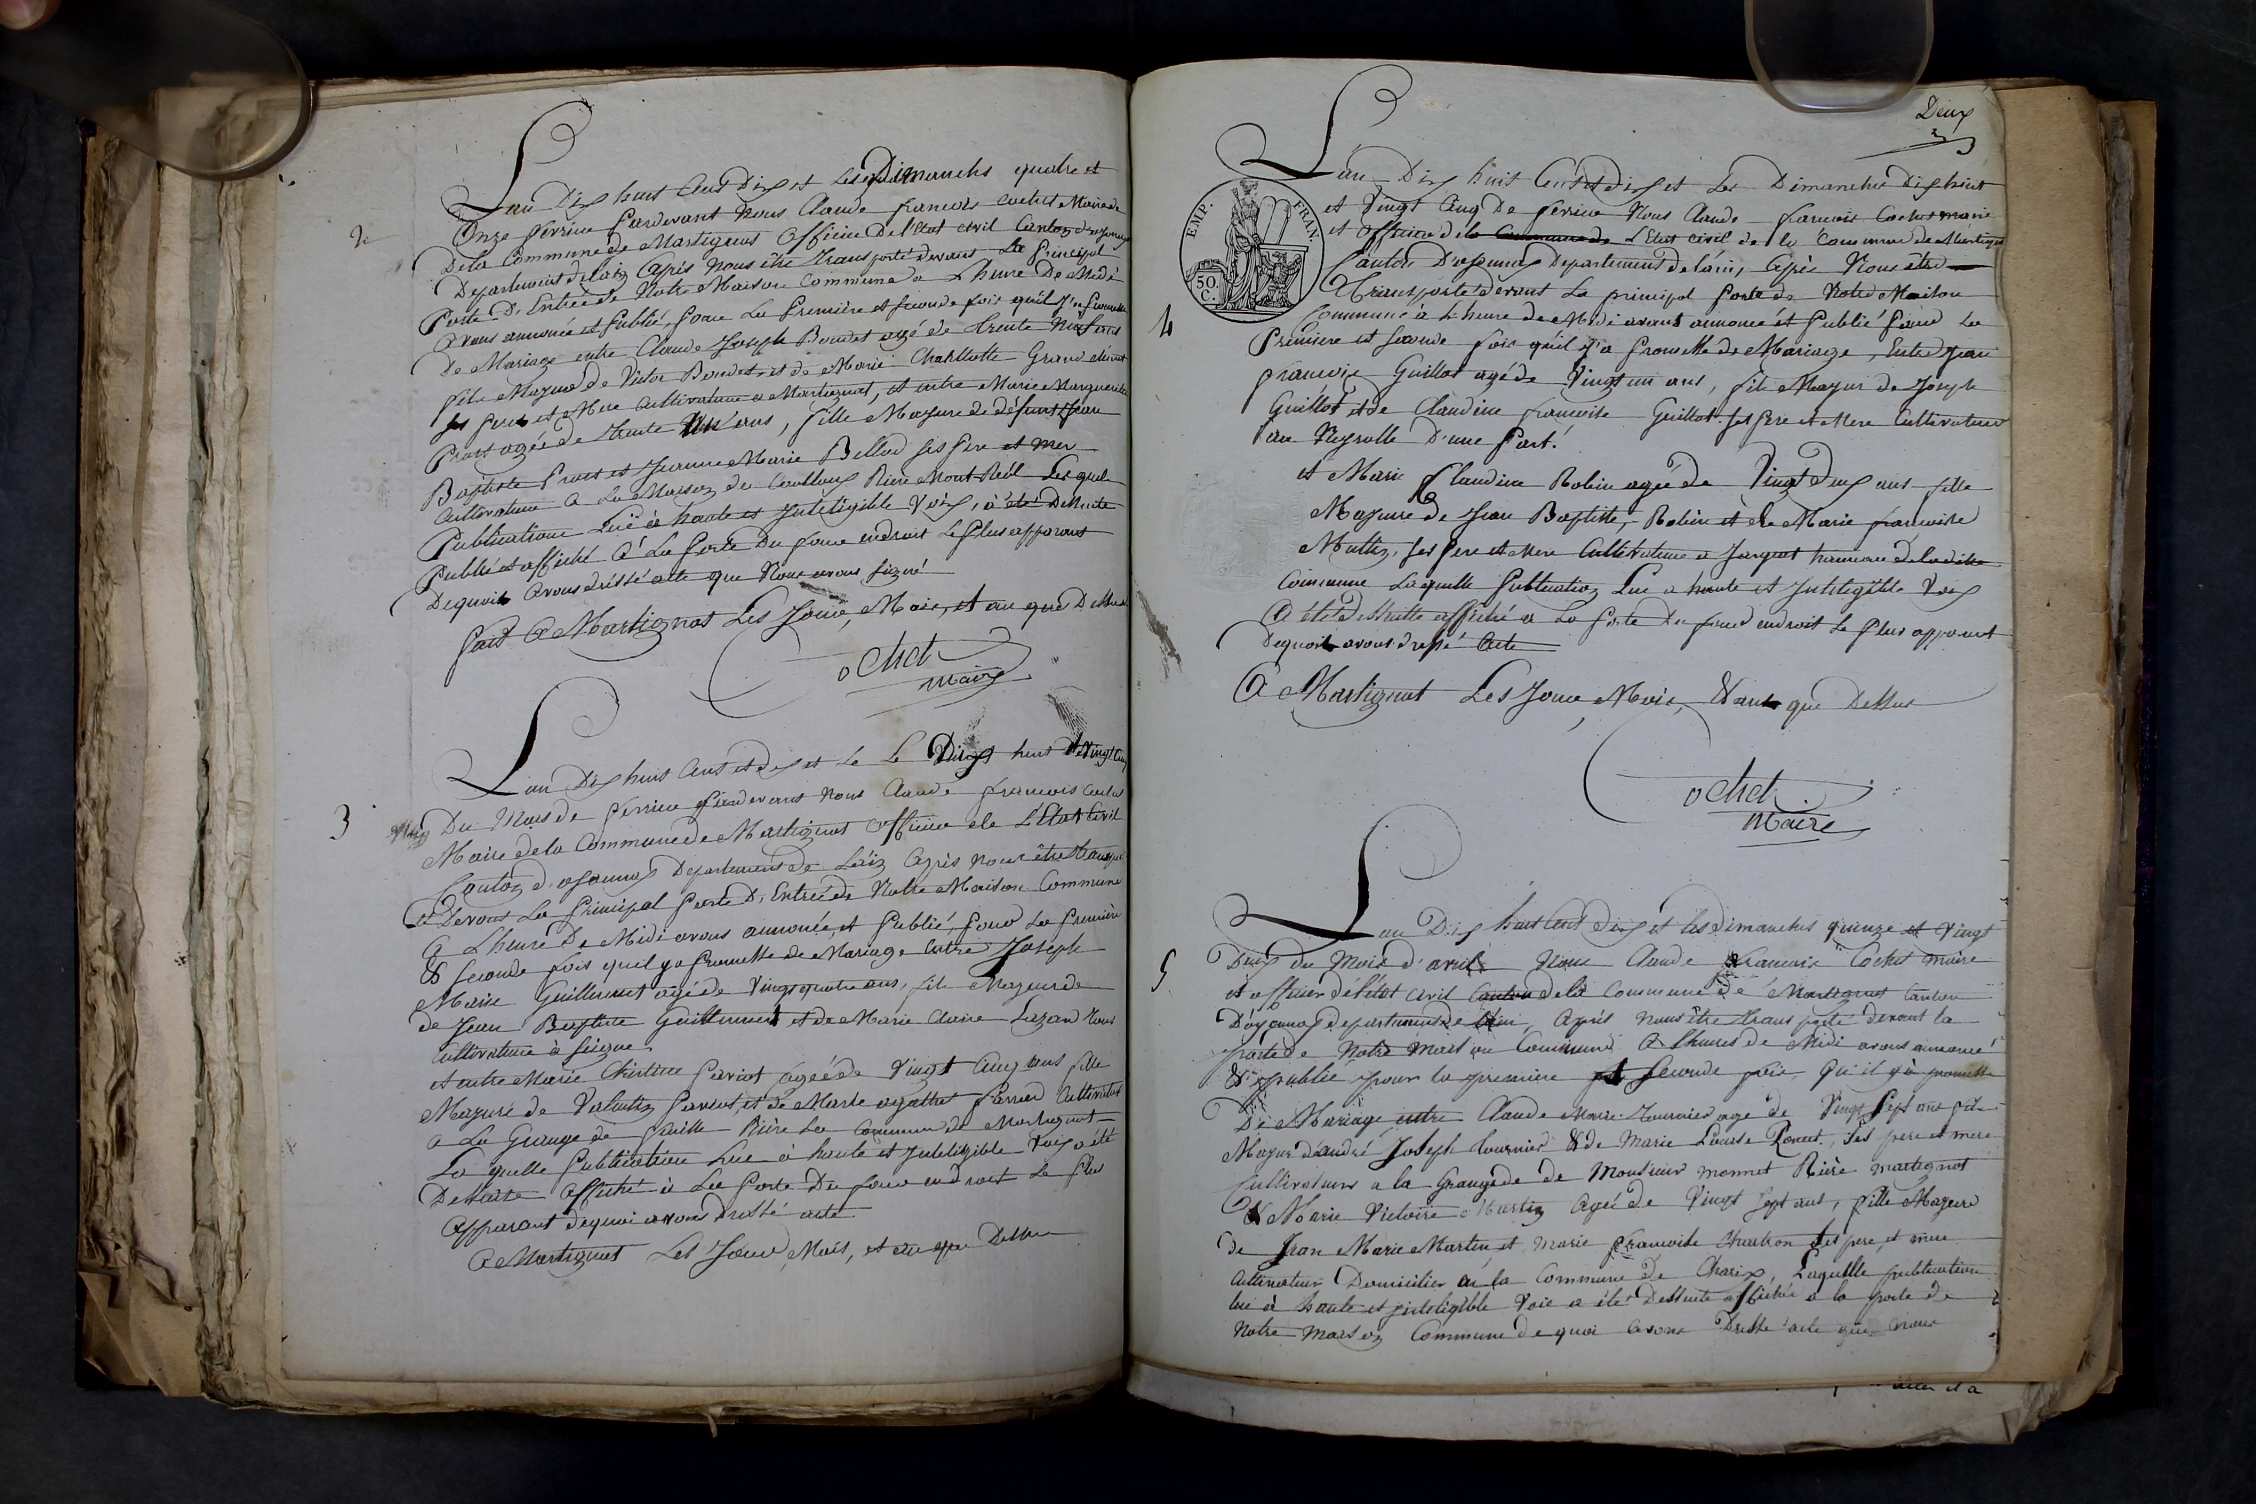 2
L'an Dix huit Cent Dix et Les Dimanches quatre et
Onze fevrier Pardevant Nous Claude francois Cochet Maire de
De la Commune de Martignat Officier De l'Etat civil Canton d'oyonnax
Departement de lain Après Nous être transporté devant La Principal
Porte D'Entrée de Notre Maison Commune a L'heure De Midi
avons annoncé et Publié, pour La Première et seconde fois qu'il y'a promesse
De Mariage entre Claude Joseph Boudet agé de trente
fils Mageur de Victor Boudet, et de Marie Charllotte Grand
ses pere et Mere Cultivateur a Martignat, et entre Marie Marguerite
Prost agée de trente ans, fille Majeure de défunt Jean
Baptiste Prost et Jeanne Marie Bellod ses Pere et mer
Cultivateur a La Maison de Riere Mont Reäl Les quel
Publications Luë à haute et Inteligible Voix, à été Dessuite
Publié et affiché à La Porte Du four endroit Le Plus apparant
Dequoit avons dréssé acte que Nous avons signé
fait a Martignat Les Jour, Mois, et an que Dessus
Cochet
maire
3
L'an Dix huit Cent et dix et le Dix huit et vingt Cinq
Du Mois de fevrier Pardevant Nous Claude francois Cochet
Maire de la Commune de Martignat officier de L'Etat Civil
Canton d'oyonnax Departement de Lain Après Nous être transporté
Devant La Principal porte D'Entrée de Notre Maison Commune
à L'heure De Midi avons annoncée, et Publié, pour La premiere
& seconde fois quel ya promette de Mariage Entre Joseph
Marie Guillermet agé de Vingt quatre ans, fils Mageur de
de Jean Baptiste Guillermet et de Marie Claire tous
Cultivateur à
et entre Marie Christine agéé de Vingt Cinq ans fille
Mageure de Valentin et de Marie agathe Cultivateur
a La Grange de Rière La Commune de Martignat
La quelle Publication Lue à haute et Inteligible Voix a été
Dessuite affiché à La Porte Du four endroit Le Plus
apparant dequoi avons dressé acte
à Martignat Les Jour, Mois, et an que Dessus
Deux
EMP. FRAN.
50.
C.
4
L'an Dix huit Cent et dix et Les Dimanches Dix huit
et Vingt Cinq De fevrier Nous Claude francois Cochet maire
et officier de la Commune de L'Etat civil de la Commune de Martignat
Canton D'oyonnax Departement de l'ain, Après Nous être
Transporté devant La principal Porte de Notre Maison
Commune à L'heure de Midi avons annoncé et Publié Pour La
Premiere et seconde fois qu'il y'a promette de Mariage, Entre Jean
francois Guillot agé de Vingt un ans, fils Mageur de Joseph
Guillot et de Claudine francoise Guillot ses Pere et Mere Cultivateur
au Neyrolle D'une Part.
et Marie Claudine Robin agée de Vingt Deux ans fille
Mageure de Jean Baptiste Robin et de Marie francoise
ses Pere et Mere Cultivateur a hameau de Ladite
Commune Laquelle Publication Lue a haute et Inteligible Voix
a été Dessuitte affiché a La Porte Du four endroit Le Plus apparant
Dequoit avons dressé Acte
à Martignat Les Jour, Mois, & an que Dessus
Cochet
Maire
5
L'an Dix huit Cent dix et Les dimanches quinze et Vingt
Deux du Mois d'avril Nous Claude Francois Cochet maire
et officier de l'état civil canton de la Commune de Martignat Canton
D'oyonnax departement de l'ain, après nous être transporté devant la
porte de Notre Maison Commune à Lheure de Midi avons annoncé
& publié pour la premiere et seconde fois Qu'il y a promette
De Mariage entre Claude Marie Tournier agé de Vingt sept ans fils
Mageur d'andré Joseph Tournier & de Marie Louise Poncet, ses pere et mere
Cultivateurs a la Grange de Monsieur monnet Rière martignat
& Marie Victoire Martin Agée de Vingt sept ans, fille Mageure
de Jean Marie Martin et marie francoise ses pere et mere
Cultivateurs Domicilier en la Commune De Charix, Laquelle publication
lue à haute et inteligible Voie a été Dessuite affichée a la porte de
Notre maison Commune de quoi avons Dressé acte que nous